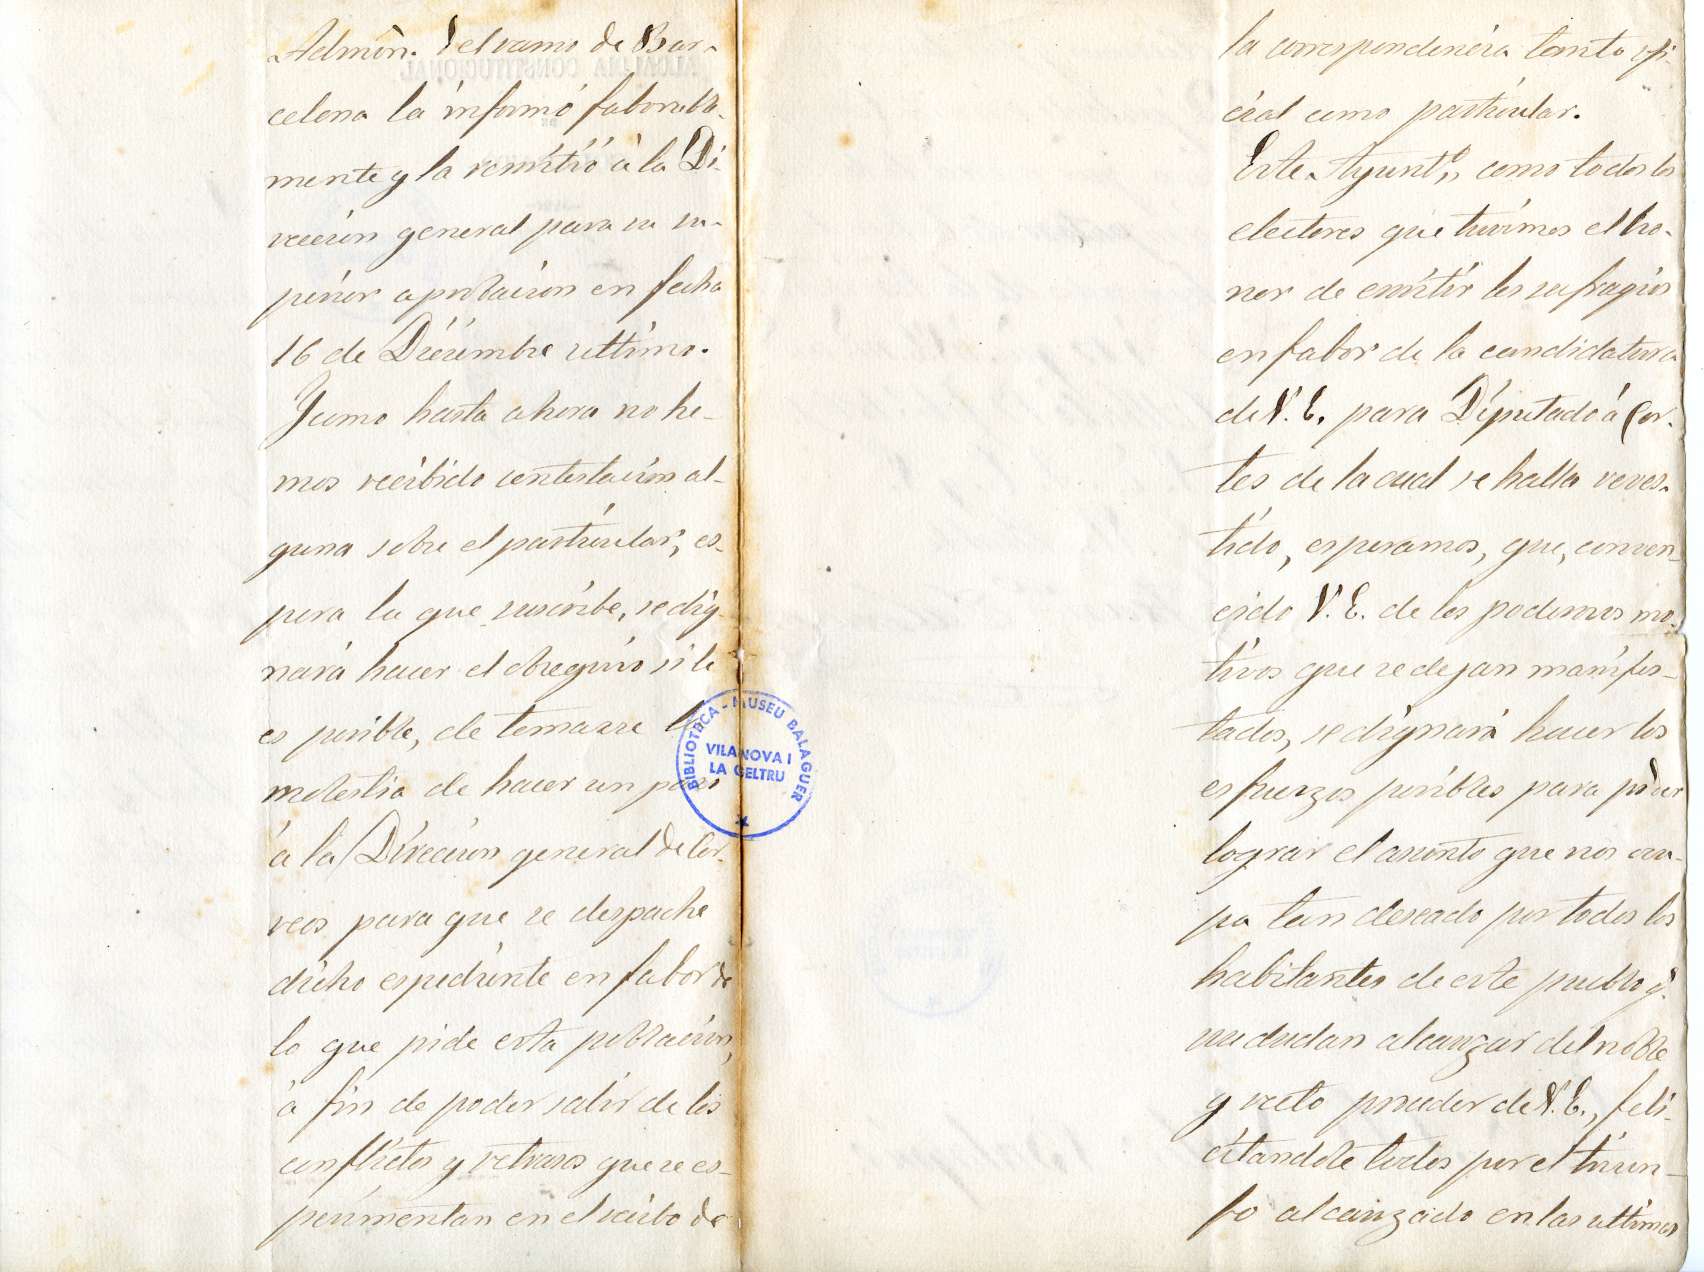 Admón. del ramo de Bar-
celona la informó faborable-
mente y la remitió á la Di-
rección general para su su-
perior aprobacion en fecha
16 de Diciembre ultimo.
Y como hasta ahora no he-
mos recibido contestacion al-
guna sobre el particular, es-
pera la que suscribe, se dig-
nará hacer el obsequio si le
es posible, de tomarse la
molestia de hacer un paso
á la Direccion general de Cor-
reos para que se despache
dicho espediente en fabor de
lo que pide esta poblacion,
á fin de poder salir de los
conflictos y retrasos que se es-
perimentan en el recibo de
BIBLIOTECA - MUSEU BALAGUER
VILANOVA I
LA GELTRU
la correspondencia tanto ofi-
cial como particular.
Este Ayunt.º, como todos los
electores que tuvimos el ho-
nor de emitir los sufragios
en fabor de la candidatura
de V. E. para Diputado á Cor-
tes de la cual se halla reves-
tido, esperamos, que, conven-
cido V. E. de los poderosos mo-
tivos que se dejan manifes-
tados, se dignará hacer los
esfuerzos posibles para poder
lograr el asunto que nos ocu-
pa tan deseado por todos los
habitantes de este pueblo q.
no dudan alcanzar del noble
y recto proceder de V. E., feli-
citandole todos por el triun-
fo alcanzado en las ultimas